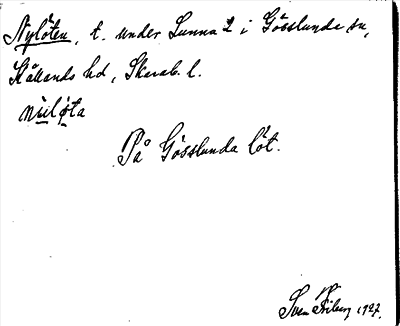 Nylöten, t. under Sunna 2 i Gösslunda sn,
Kållands hd, Skarab. l.
nüløta
På Gösslunda löt.
Sven Friberg 1927.